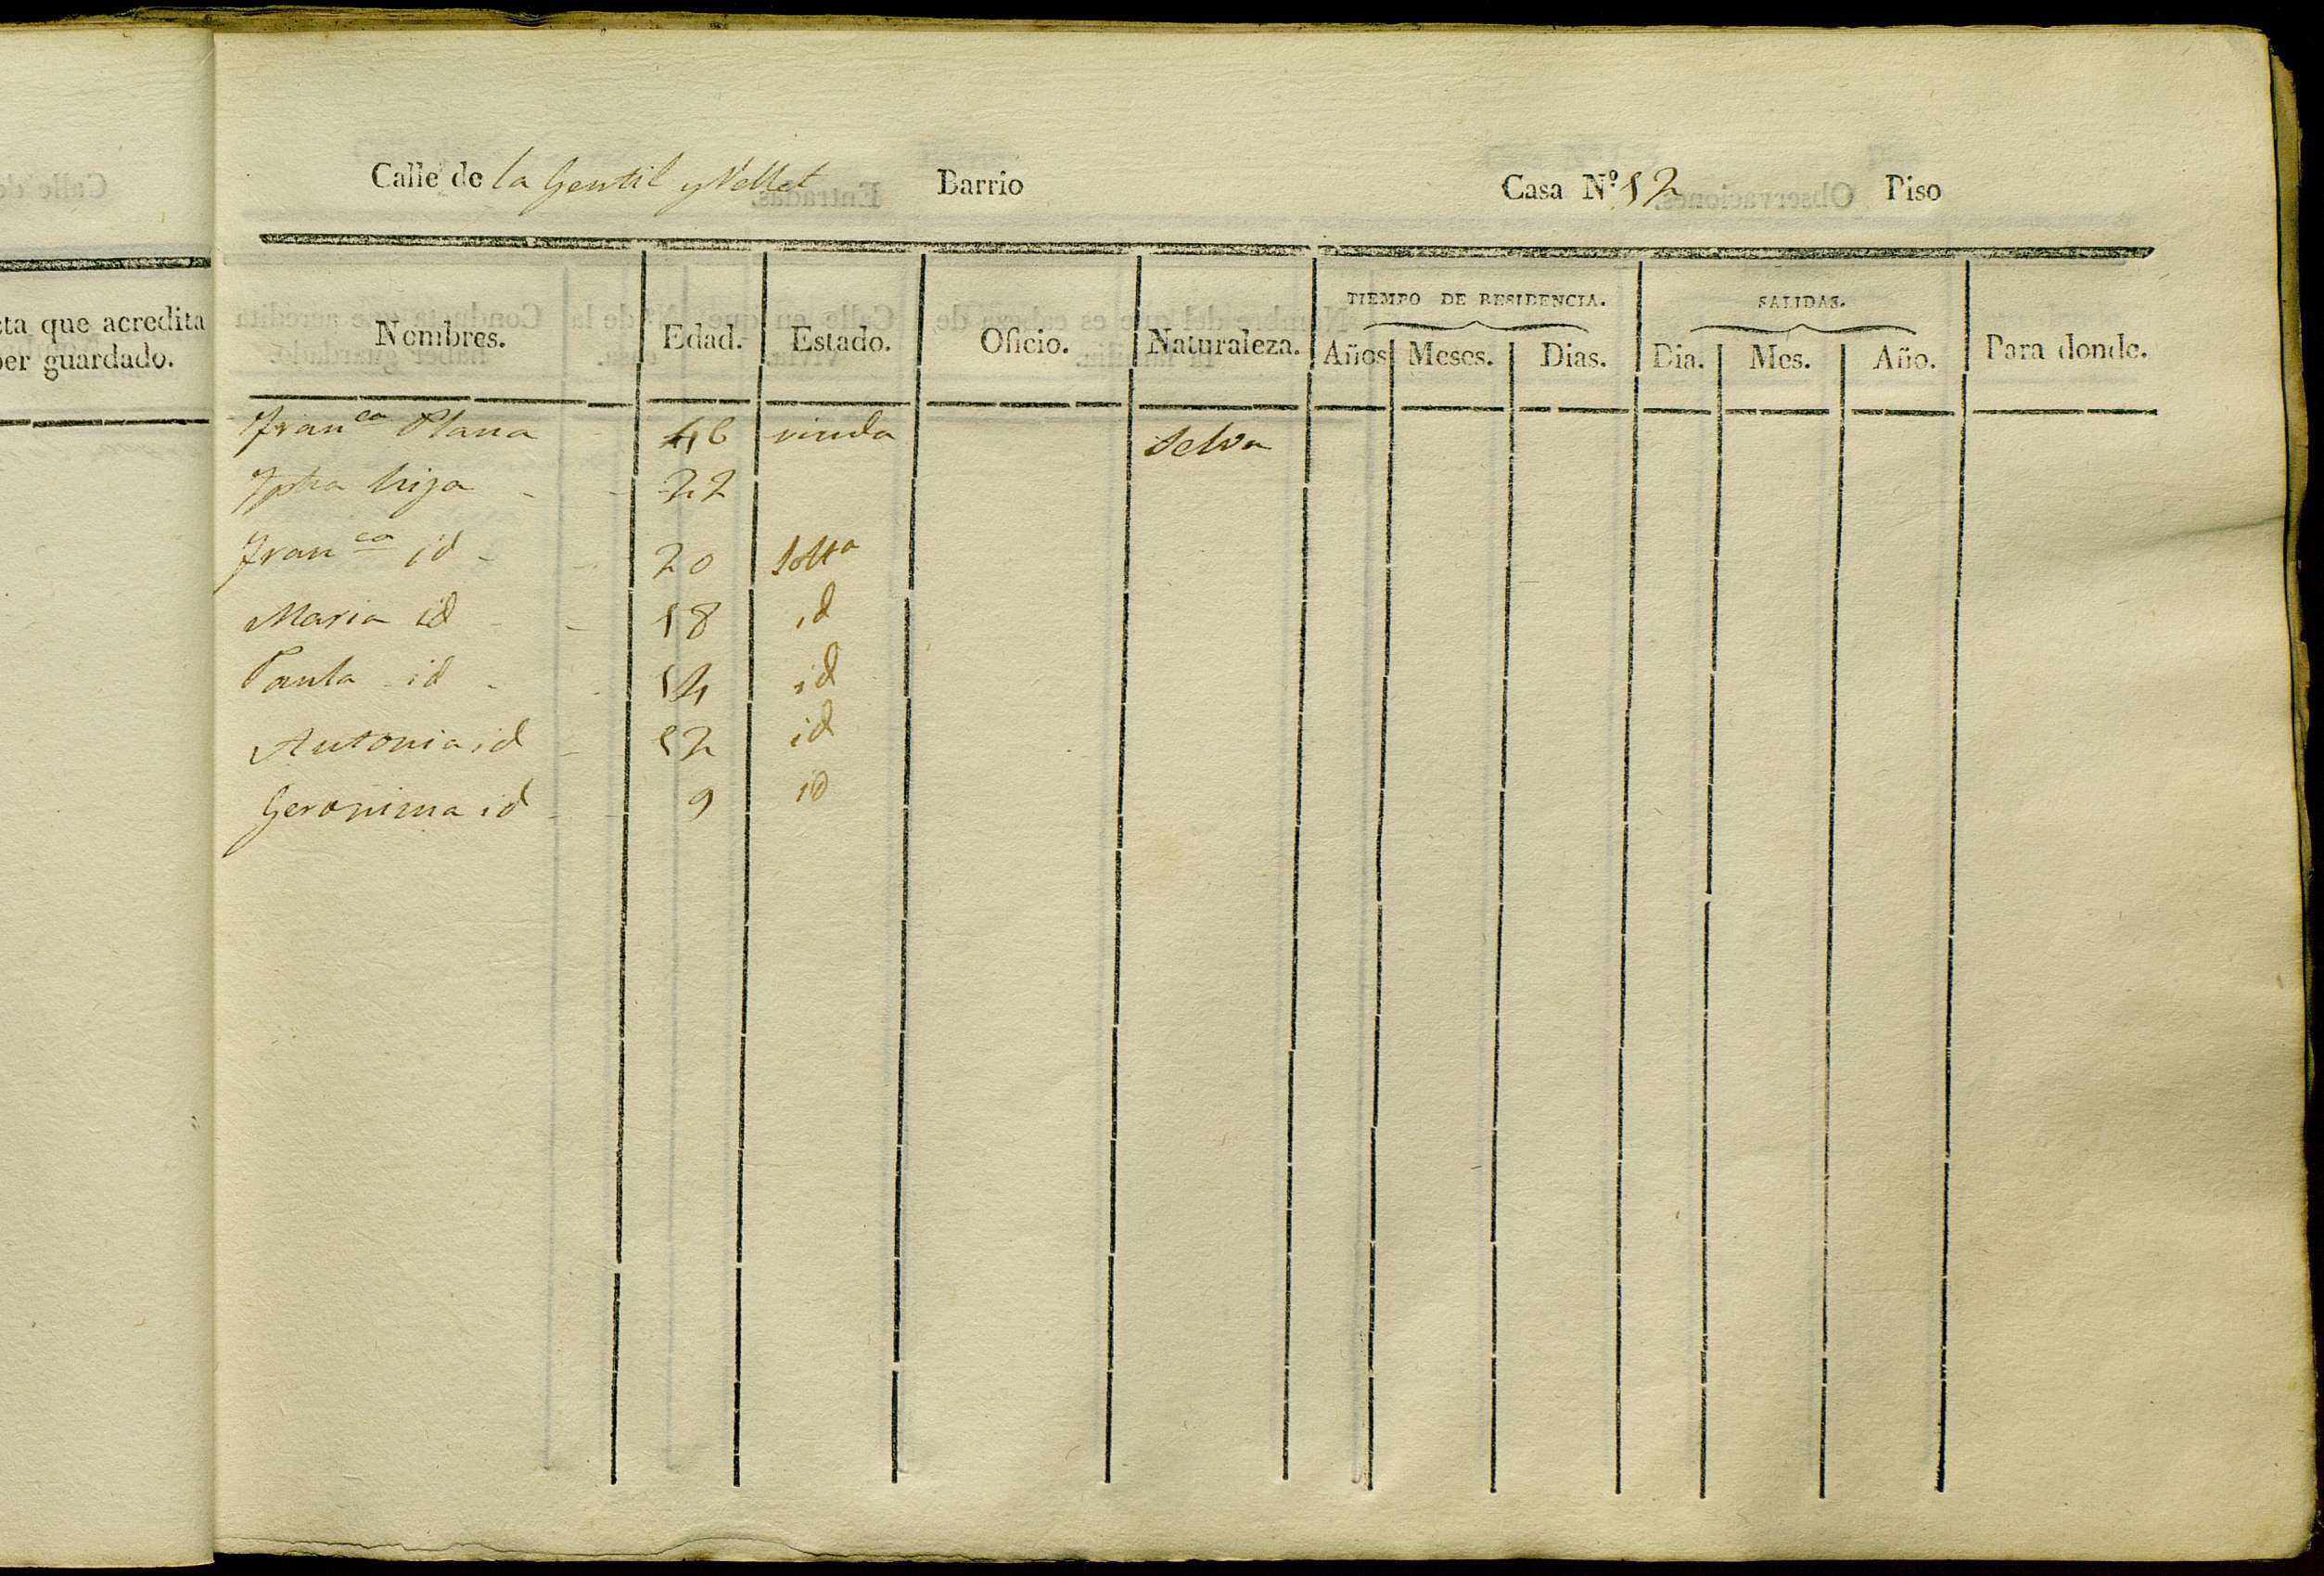 Calle de la Gentil y Vellet Barrio Casa N.º 12 Piso
cta que acredita
ber guardado.
TIEMPO DE RESIDENCIA. SALIDAS.
Nombres. Edad. Estado. Oficio. Naturaleza. Años Meses. Dias. Dia. Mes. Año. Para donde.
Fran^ca Plana 46 viuda Selva
hija - 22
Fran^ca id - 20 solt^a
Maria id - 18 id
Paula id - 14 id
Antonia id - 12 id
Geronima id - 9 id